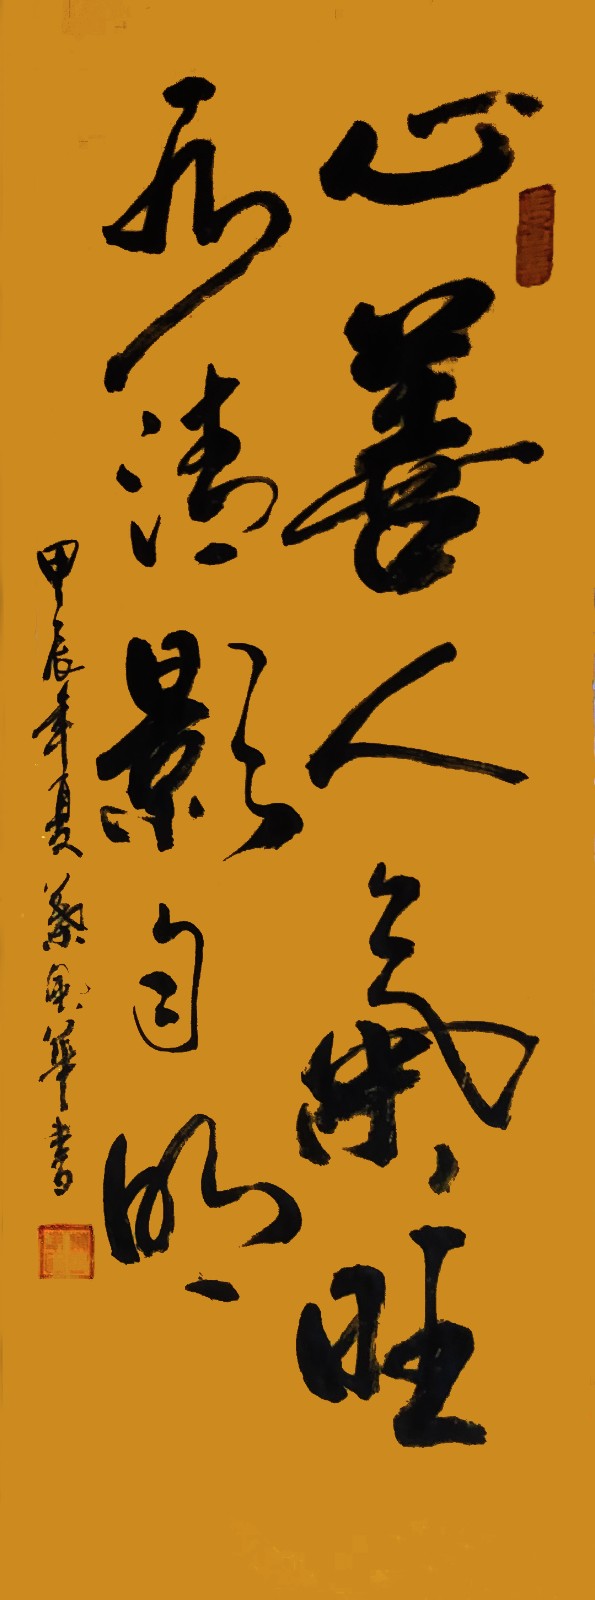 心善人氣旺
水清影自明
甲辰年夏華書